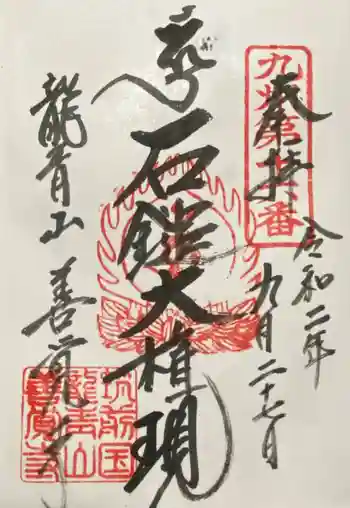 奉拝
九州第十 番
令和二年
九月二十七日
石鎚大権現
龍青山 善覚寺
筑前国
龍青山
善覚寺